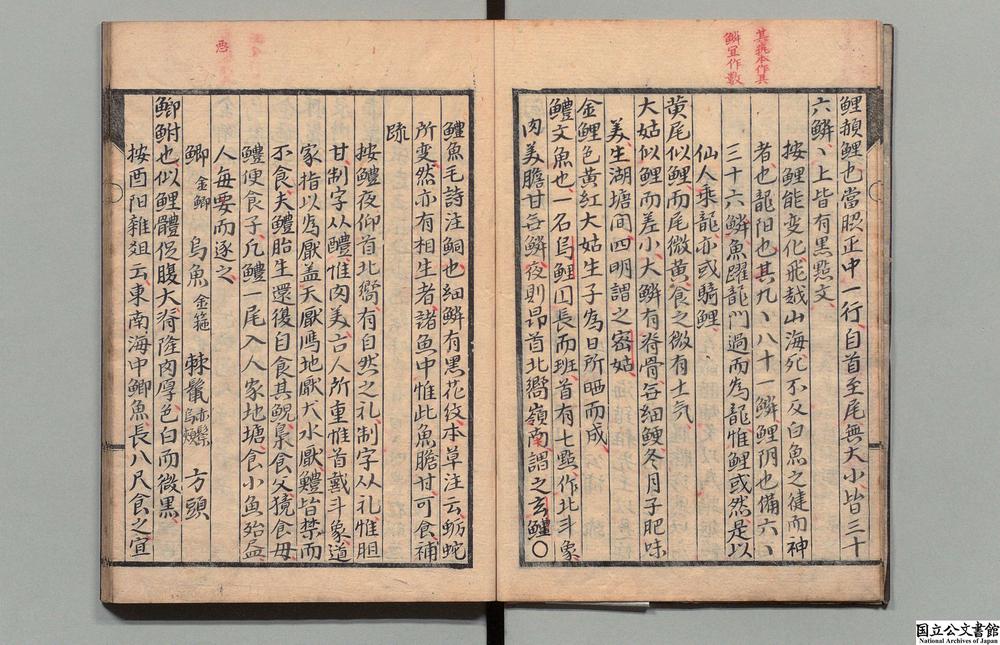 其抗本作具
鱗宜作數
鯉頳鯉也當脥正中一行自首至尾無大小皆三十
六鱗丶上皆有黒㸃文
按鯉能变化飛越山海死不反白魚之徤而神
者也龍阳也其九丶八十一鱗鯉阴也備六丶
三十六鱗魚躍龍門過而為龍惟鯉或然是以
仙人乗龍亦或騎鯉
黄尾似鯉而尾微黄食之微有土气
大姑似鯉而差小大鱗有脊骨每細鯁冬月子肥味
美生湖塘间四明謂之宻姑
金鯉色黄紅大姑生子為日所晒而成
鱧文魚也一名烏鯉囙長而斑首有七㸃作北斗象
肉美膽甘每鱗夜則昂首北嚮嶺南謂之玄鱧〇
鱧魚毛詩注鮦也細鱗有黒花纹本草注云蛎蛇
所变然亦有相生者諸魚中惟此魚膽甘可食補
疏
按鱧夜仰首北嚮有自然之礼制字从礼惟胆
甘制字从醴惟肉美古人所重惟首戴斗象道
家指以為厭盖天厭鴈地厭犬水厭鱧皆禁而
不食夫鱧胎生還復自食其鯢梟食父獍食母
鱧便食子凡鱧一尾入人家地塘食小魚殆盡
人每要而逐之
鯽 金鯽 烏魚 金箍 棘鬛 赤鬃 烏頰 方頭
鯽鮒也似鯉體促腹大脊隆肉厚色白而微黒
按酉阳雜爼云東南海中鯽魚長八尺食之宜
国立公文書館
National Archives of Japan